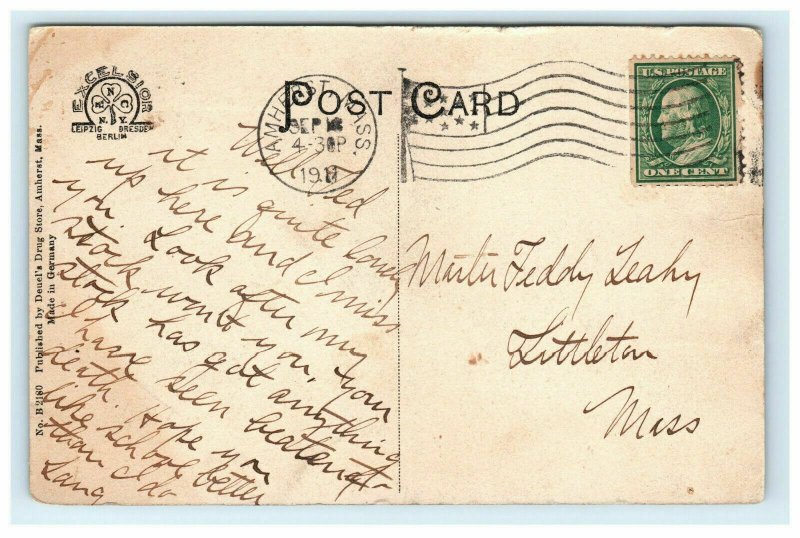 EXCELSIOR
E N C
N.Y.
LEIPZIG DRESDEN
BERLIN
POST CARD
AMHERST MASS.
SEP
4-30P
U.S. POSTAGE
ONE CENT
No. B2180 Published by Deuel's Drug Store, Amherst, Mass.
Made in Germany
Well
it is quite lonely
up here and I miss
you. Look after my
stock, won't you, your
stock has got anything
I have seen beaten to
death. Hope you
like school better
than I do
Master Teddy Leahy
Littleton
Mass